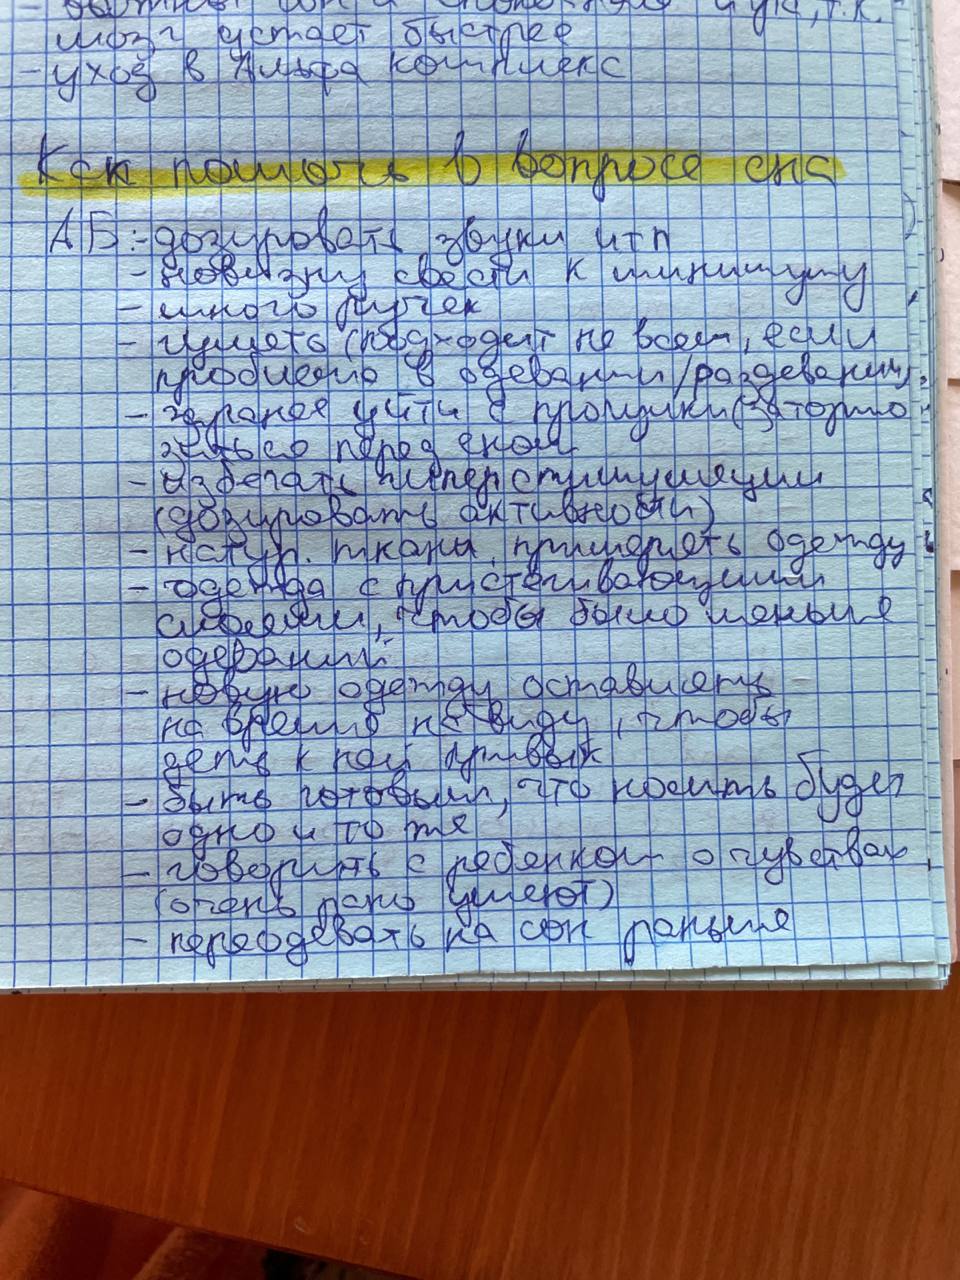 мозг устает быстрее
- уход в Альфа комплекс
Как помочь в вопросе сна
АБ: - дозировать звуки итп
- новизну свести к минимуму
- много ручек
- (подходит не всем, если
проблема в одевании/раздевании)
- заранее уйти с прогулки (затормо
зиться перед сном
- избегать гиперстимуляции
(дозировать активности)
- наступ. ткани, примерять одежду
- одежда с пристегивающимися
слоями, чтобы было меньше
одеваний
- новую одежду оставлять
на время на виду, чтобы
деть к ней привык
- быть готовым, что носить будет
одно и то же
- говорить с ребенком о чувствах
(очень рано умеют)
- переодевать на сон раньше